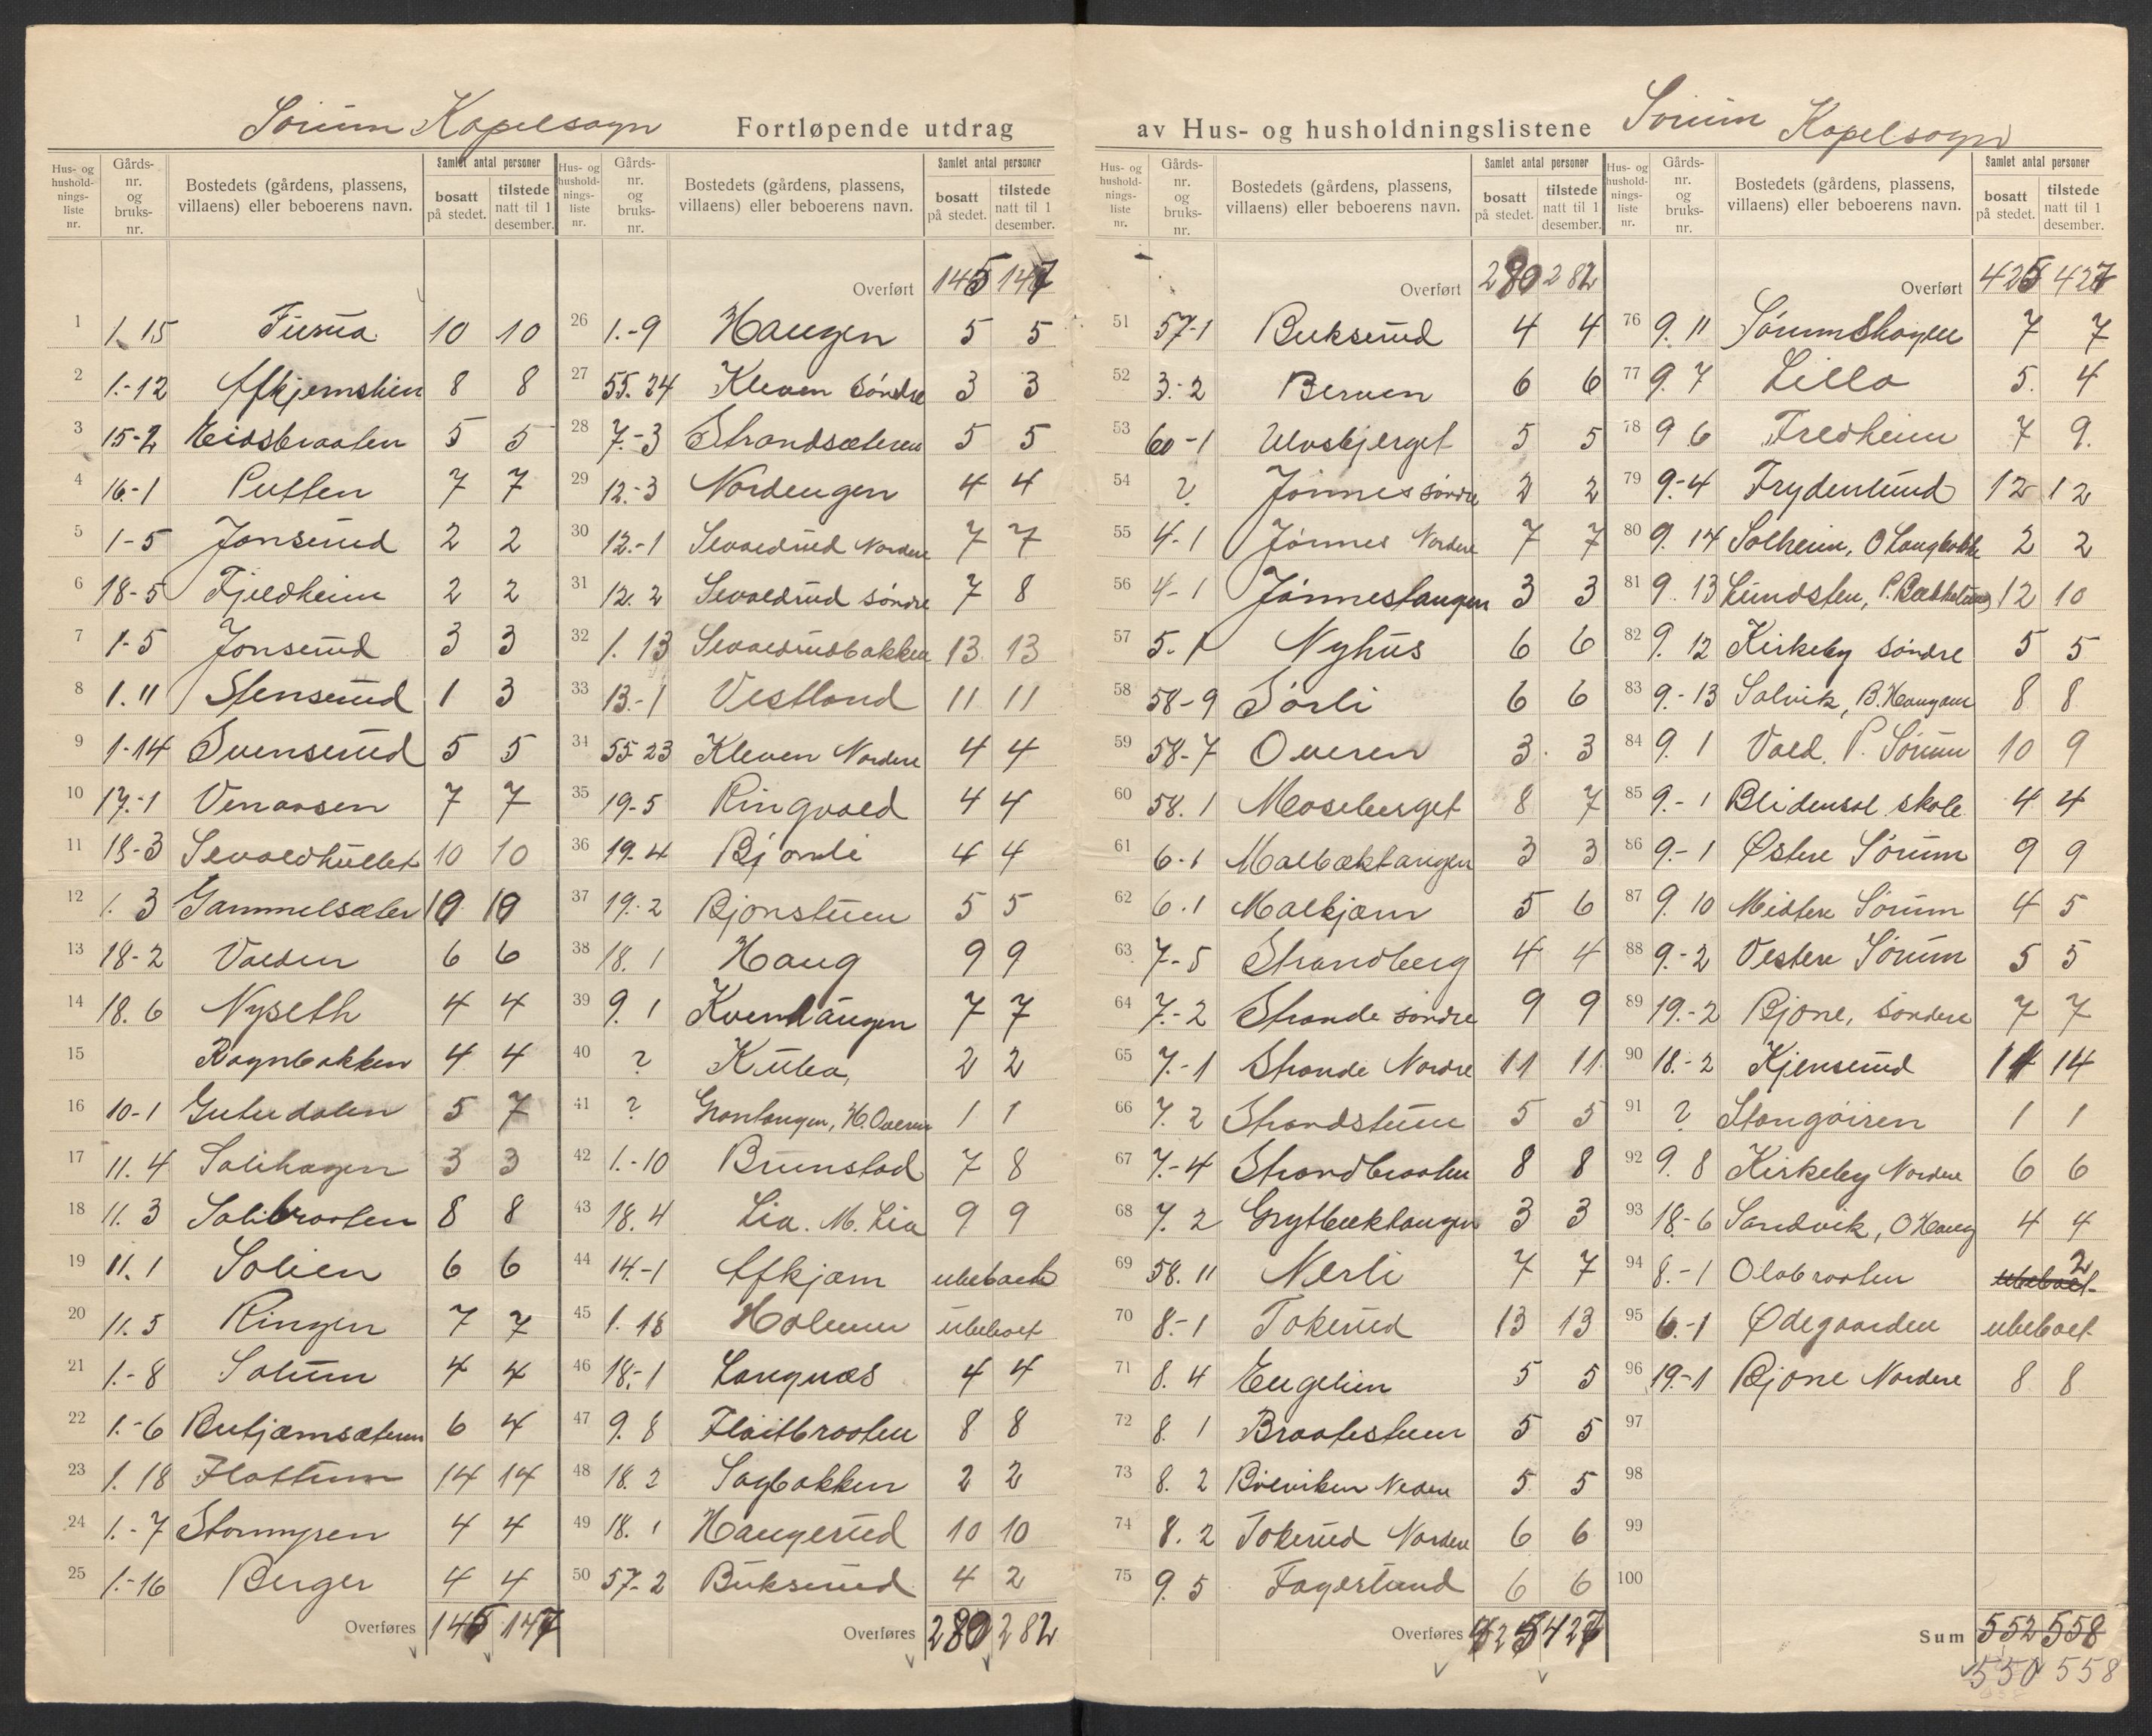 Sørum Kapelsogn Fortløpende utdrag
av Hus- og husholdningslistene Sørum Kapelsogn
Hus- og hushold-nings-liste nr. Gårds-nr. og bruks-nr. Bostedets (gårdens, plassens, villaens) eller beboerens navn. Samlet antal personer bosatt på stedet. tilstede natt til 1 desember.
1 1. 15 Furua 10 10
2 1.-12 Afkjernslien 8 8
3 15-2 Eidsbraaten 5 5
4 16-1 Putten 7 7
5 1-5 Jonserud 2 2
6 18-5 Fjeldheim 2 2
7 1-5 Jonserud 3 3
8 1. 11 Stenserud 1 3
9 1-14 Svenserud 5 5
10 17.-1 Venaasen 7 7
11 18-3 Sevaldhullet 10 10
12 1. 3 Gammelsæter 10 10
13 18-2 Valden 6 6
14 18. 6 Nyseth 4 4
15 Rognbakken 4 4
16 10-1 Guterdalen 5 7
17 11. 4 Solihagen 3 3
18 11. 3 Solibraaten 8 8
19 11. 1 Solien 6 6
20 11. 5 Ringen 7 7
21 1.-8 Solum 4 4
22 1.-6 Butjærnsæteren 6 4
23 1. 18 Flattum 14 14
24 1.-7 Stormyren 4 4
25 1.-16 Berger 4 4
Overføres 145 147
Hus- og hushold-nings-liste nr. Gårds-nr. og bruks-nr. Bostedets (gårdens, plassens, villaens) eller beboerens navn. Samlet antal personer bosatt på stedet. tilstede natt til 1 desember.
Overført 145 147
26 1.-9 Haugen 5 5
27 55. 24 Kleven Søndre 3 3
28 7.-3 Strandsæteren 5 5
29 12.-3 Nordengen 4 4
30 12.-1 Sevaldrud Nordre 7 7
31 12. 2 Sevaldrud søndre 7 8
32 1. 13 Sevaldrudbakken 13 13
33 13.-1 Vestland 11 11
34 55 23 Kleven Nordre 4 4
35 19-5 Ringvold 4 4
36 19. 4 Bjønli 4 4
37 19. 2 Bjonstuen 5 5
38 18. 1 Haug 9 9
39 9. 1 Kvenhaugen 7 7
40 ? Kuba, 2 2
41 ? Grøntangen, H. Overen 1 1
42 1.-10 Brunstad 7 8
43 18. 4 Lia. M. Lia 9 9
44 14.-1 Afkjærn ubeboet
45 1. 18 Holmen ubeboet
46 18.-1 Langnæs 4 4
47 9. 8 Fløitbraaten 8 8
48 18. 2 Sagbakken 2 2
49 18. 1 Haugerud 10 10
50 57.-2 Bukserud 4 2
Overføres 280 282
Hus- og hushold-nings-liste nr. Gårds-nr. og bruks-nr. Bostedets (gårdens, plassens, villaens) eller beboerens navn. Samlet antal personer bosatt på stedet. tilstede natt til 1 desember.
Overført 280 282
51 57-1 Bukserud 4 4
52 3.-2 Berven 6 6
53 60-1 Ulvsbjerget 5 5
54 ? Jønnes søndre 2 2
55 4.-1 Jønnes Nordre 7 7
56 4-1 Jønnestangen 3 3
57 5.-1 Nyhus 6 6
58 58-9 Sørli 6 6
59 58-7 Overen 3 3
60 58. 1 Moseberget 8 7
61 6-1 Malbæktangen 3 3
62 6.1 Malkjærn 5 6
63 7.-5 Strandberg 4 4
64 7.-2 Strande søndre 9 9
65 7.-1 Strande Nordre 11 11
66 7. 2 Strandstuen 5 5
67 7.-4 Strandbraaten 8 8
68 7. 2 Grytbæktangen 3 3
69 58. 11 Nerli 7 7
70 8.-1 Tokerud 13 13
71 8. 4 Engelien 5 5
72 8. 1 Braatestuen 5 5
73 8. 2 Bølviken Nedre 5 5
74 8. 2 Tokerud Nordre 6 6
75 9. 5 Fagerlund 6 6
Overføres 425 427
Hus- og hushold-nings-liste nr. Gårds-nr. og bruks-nr. Bostedets (gårdens, plassens, villaens) eller beboerens navn. Samlet antal personer bosatt på stedet. tilstede natt til 1 desember.
Overført 425 427
76 9. 11 Sørumshagen 7 7
77 9. 7 Lillo 5. 4
78 9 6 Fredheim 7 9.
79 9.-4 Frydenlund 12 12
80 9. 14 Solheim, O Langbakk 2 2
81 9. 13 Lundsten, P. Bækkelung 12 10
82 9. 12 Kirkeby søndre 5 5
83 9.-13 Solvik, B. Haugam 8 8
84 9. 1 Vold. P. Sørum 10 9
85 9.-1 Blidensol skole 4 4
86 9.-1 Østre Sørum 9 9
87 9. 10 Midtre Sørum 4 5
88 9.-2 Vestre Sørum 5 5
89 19.-2 Bjone, søndre 7 7
90 18.-2 Kjenserud 14 14
91 ? Stangøiren 1 1
92 9. 8 Kirkeby Nordre 6 6
93 18.-6 Sandvik, O Haug 4 4
94 8.-1 Olabraaten ubeboet 2
95 6.-1 Ødegaarden ubeboet
96 19.-1 Bjone Nordre 8 8
97
98
99
100
Sum 552 558
550 558